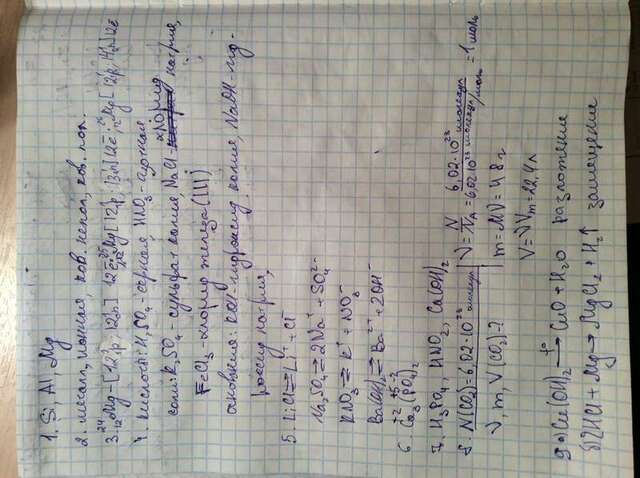 1. Si, Al, Mg
2. металл, ионная, ков. непол, ков. пол.
3. ²⁴₁₂Mg – [12p, 12n] 12ē; ²⁵₁₂Mg [12p, 13n] 12ē; ²⁶₁₂Mg [12p, 14n] 12ē
4. кислоты: H₂SO₄ – серная, HNO₃ – азотная
соли: K₂SO₄ – сульфат калия, NaCl – хлорид натрия,
FeCl₃ – хлорид железа (III)
основания: KOH – гидроксид калия, NaOH – гид-
роксид натрия,
5. LiCl ⇄ Li⁺ + Cl⁻
Na₂SO₄ ⇄ 2Na⁺ + SO₄²⁻
KNO₃ ⇄ K⁺ + NO₃⁻
Ba(OH)₂ ⇄ Ba²⁺ + 2OH⁻
6. Ca₃(PO₄)₂ +2 +5 -2
7. H₃PO₄, HNO₂, Ca(OH)₂
8. N(CO₂) = 6,02·10²³ молекул
ν, m, V(CO₂) - ?
ν = N/Nₐ = 6,02·10²³ молекул / 6,02·10²³ молекул/моль = 1 моль
m = Mν = 48 г
V = νVm = 22,4 л
9. а) Cu(OH)₂ –t°→ CuO + H₂O разложение
б) 2HCl + Mg → MgCl₂ + H₂↑ замещение